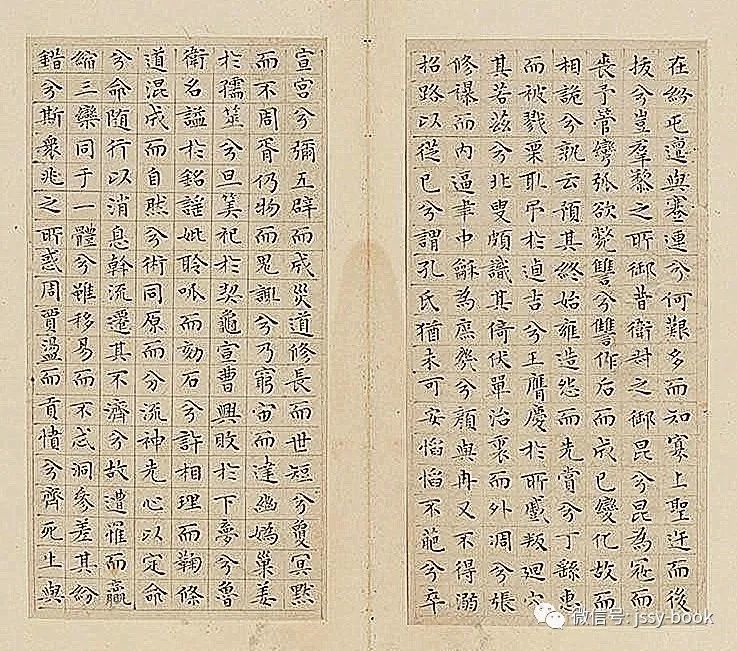 在紛屯邅與蹇連兮何艱多而知寡上聖迕而後
拔兮豈羣黎之所御昔衛叔之御昆兮昆為寇而
喪予管彎弧欲斃讐兮讐作后而成己變化故而
相詭兮孰云預其終始雍造怨而先賞兮丁繇惠
而被戮栗取吊於逌吉兮王膺慶於所慼叛迴穴
其若茲兮北叟頗識其倚伏單治裏而外凋兮張
修襮而內逼聿中龢為庶幾兮顏與冉又不得溺
招路以從己兮謂孔氏猶未可安慆慆不葩兮卒
宣宮兮彌五辟而成災道修長而世短兮夐冥默
而不周胥仍物而鬼諏兮乃窮宙而達幽媯巢姜
於孺筮兮旦筭祀於契龜宣曹興敗於下夢兮魯
衛名謚於銘謠妣聆呱而刻石兮許相理而鞠條
道混成而自然兮術同原而分流神先心以定命
兮命隨行以消息斡流遷其不濟兮故遭罹而嬴
縮三欒同于一體兮雖移易而不忒洞參差其紛
錯兮斯衆兆之所惑周賈盪而貢憤兮齊死生與
微信号: jssy-book